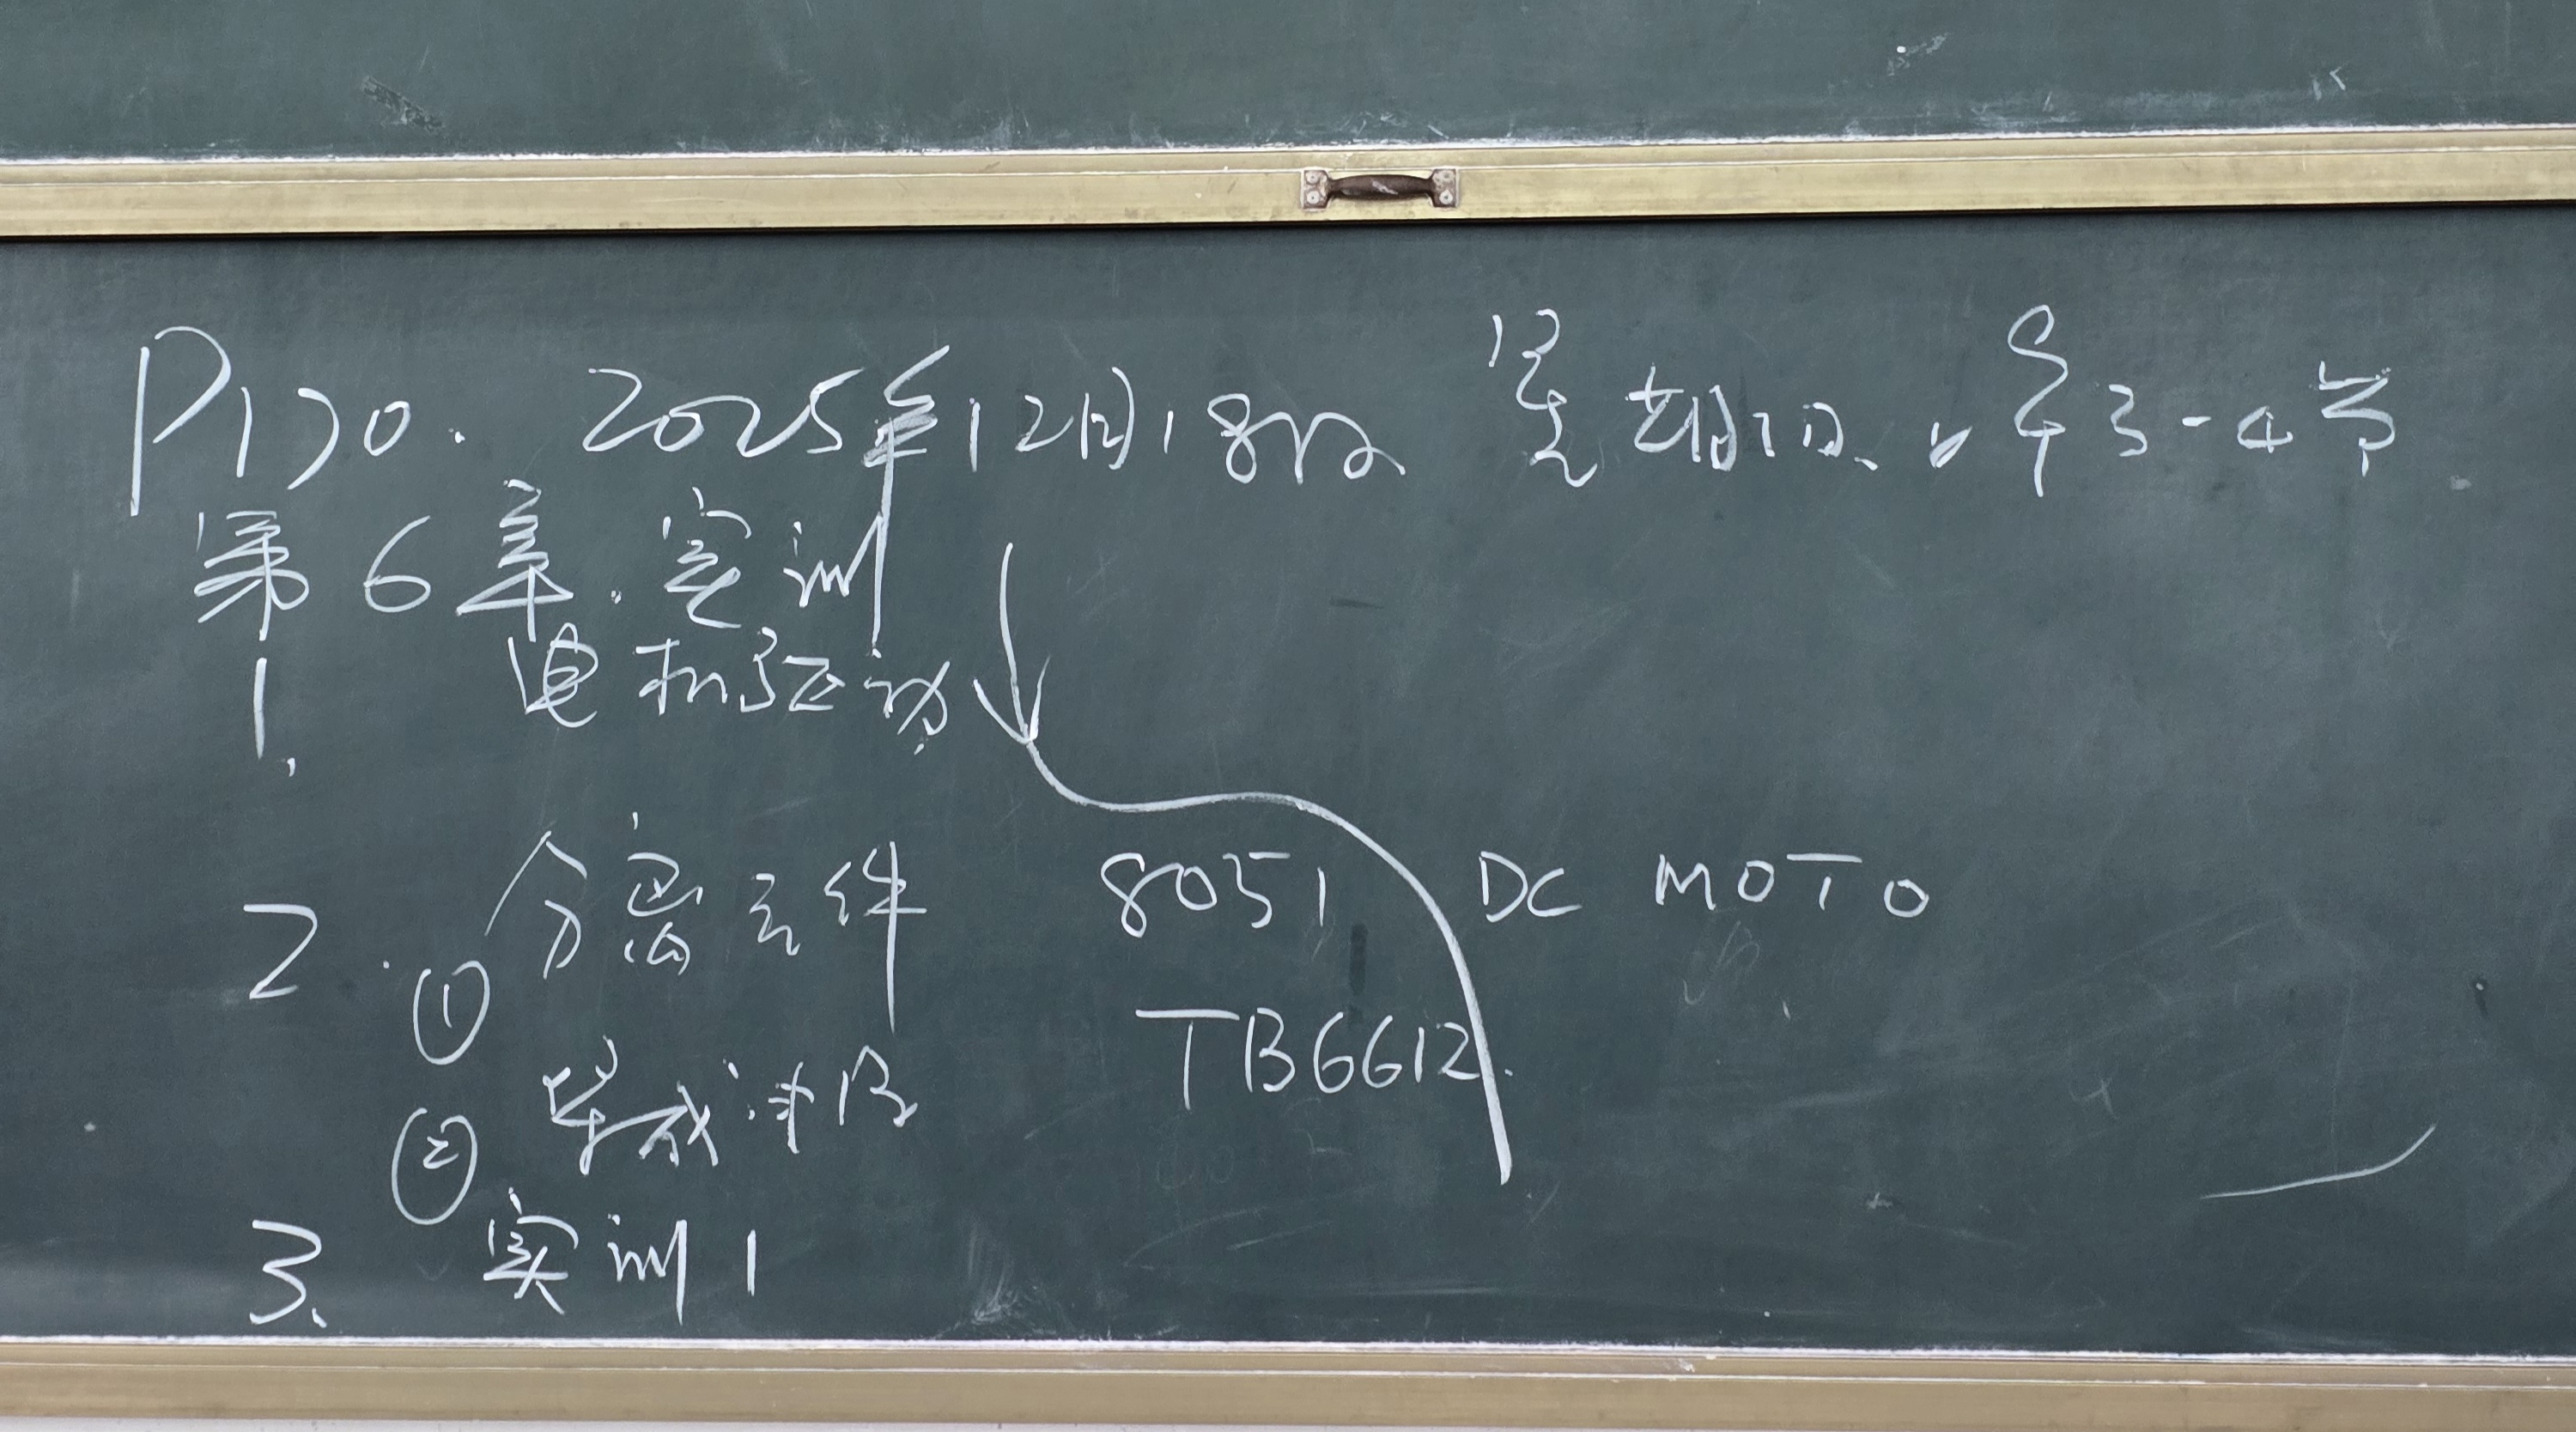 P170. 2025年12月18日 星期四、上午3-4节
第6章.实训
1. 电机驱动
2. ① 分离元件 8051 DC MOTO
② 集成 TB6612.
3、实训1